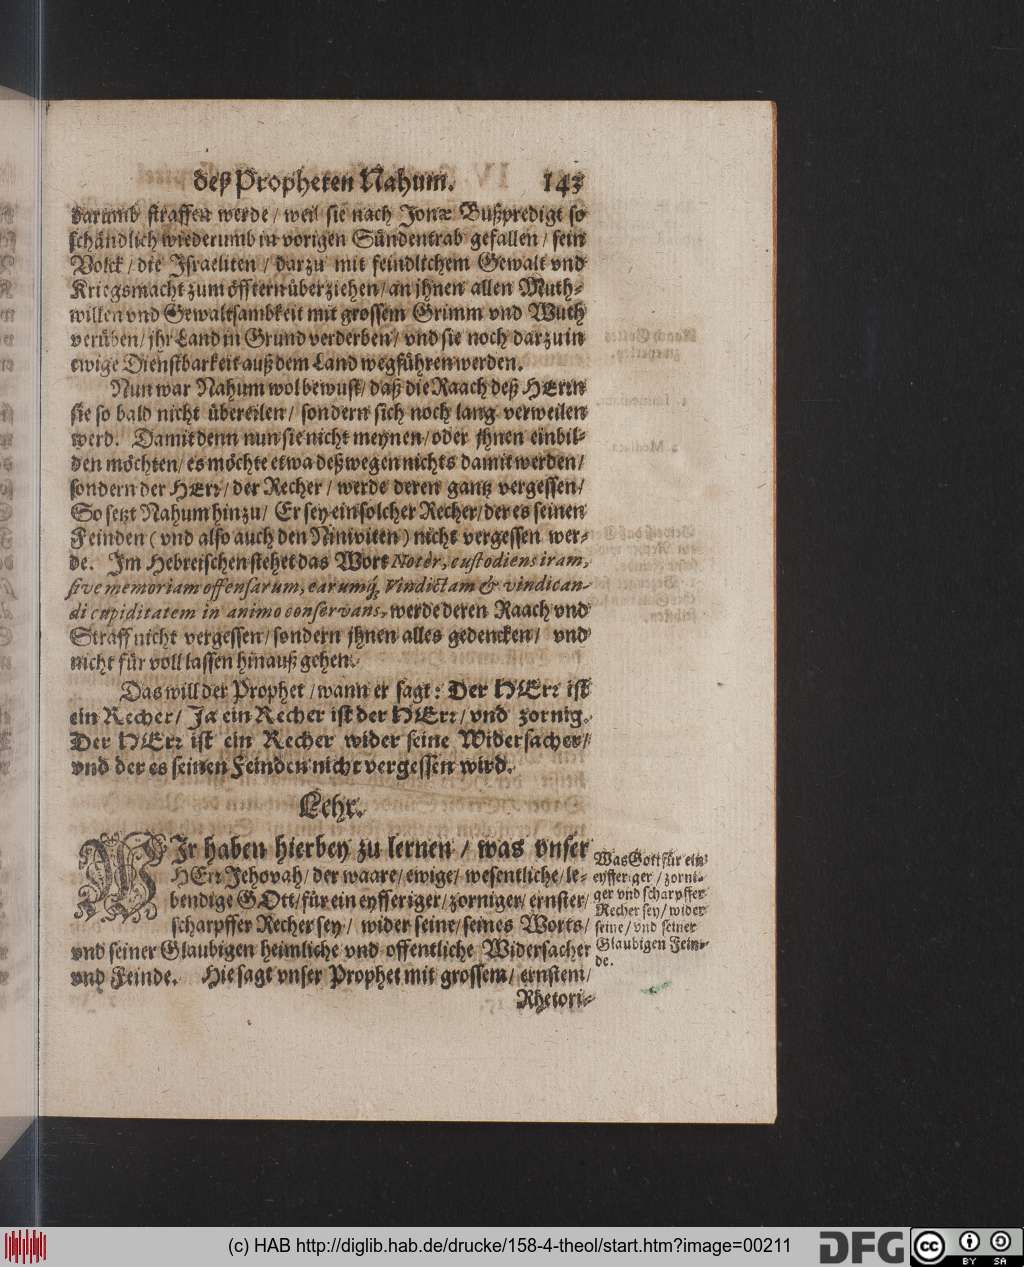 deß Propheten Nahum. 143
darumb straffen werde / weil sie nach Jonæ Bußpredigt so
schändlich wiederumb in vorigen Sündentrab gefallen / sein
Volck / die Israeliten / darzu mit feindlichem Gewalt vnd
Kriegsmacht zum öfftern überziehen / an jhnen allen Muth-
willen vnd Gewaltsambkeit mit grossem Grimm vnd Wuth
verüben / jhr Land in Grund verderben / vnd sie noch darzu in
ewige Dienstbarkeit auß dem Land wegführen werden.
Nun war Nahum wol bewust / daß die Raach deß HErrn
sie so bald nicht übereilen / sondern sich noch lang verweilen
werd. Damit denn nun sie nicht meynen / oder jhnen einbil-
den möchten / es möchte etwa deßwegen nichts damit werden /
sondern der HErr / der Recher / werde deren gantz vergessen /
So setzt Nahum hinzu / Er sey ein solcher Recher / der es seinen
Feinden ( vnd also auch den Niniviten ) nicht vergessen wer-
de. Im Hebreischen stehet das Wort Notér, custodiens iram,
sive memoriam offensarum, earumq́; vindictam & vindican-
di cupiditatem in animo conservans, werde deren Raach vnd
Straff nicht vergessen / sondern jhnen alles gedencken / vnd
nicht für voll lassen hinauß gehen.
Das will der Prophet / wann er sagt: Der HErr ist
ein Recher / Ja ein Recher ist der HErr / vnd zornig.
Der HErr ist ein Recher wider seine Widersacher /
vnd der es seinen Feinden nicht vergessen wird.
Lehr.
WIr haben hierbey zu lernen / was vnser
HErr Jehovah / der waare / ewige / wesentliche / le-
bendige GOtt / für ein eyfferiger / zorniger / ernster /
scharpffer Recher sey / wider seine / seines Worts /
vnd seiner Glaubigen heimliche vnd offentliche Widersacher
vnd Feinde. Hie sagt vnser Prophet mit grossem / ernstem /
Rhetori-
Was Gott für ein
eyfferiger / zorni-
ger vnd scharpffer
Recher sey / wider
seine / vnd seiner
Glaubigen Fein-
de.
(c) HAB http://diglib.hab.de/drucke/158-4-theol/start.htm?image=00211
DFG
cc BY SA